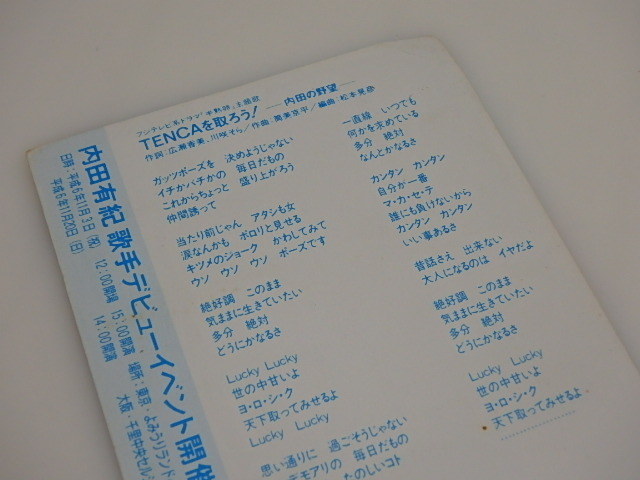 フジテレビ系ドラマ「 」主題歌
TENCAを取ろう! ー内田の野望ー
作詞:広瀬香美、川咲そら/作曲:筒美京平/編曲:松本晃彦
ガッツポーズを 決めようじゃない
イチかバチかの 毎日だもの
これからちょっと 盛り上がろう
仲間誘って
当たり前じゃん アタシも女
涙なんかも ポロリと見せる
キツメのジョーク かわしてみて
ウソ ウソ ウソ ポーズです
絶好調 このまま
気ままに生きていたい
多分 絶対
どうにかなるさ
Lucky Lucky
世の中甘いよ
ヨ・ロ・シ・ク
天下取ってみせるよ
Lucky Lucky
思い通りに 過ごそうじゃない
デモアリの 毎日だもの
たのしいコト
一直線 いつでも
何かを求めている
多分 絶対
なんとかなるさ
カンタン カンタン
自分が一番
マ・カ・セ・テ
誰にも負けないから
カンタン カンタン
いい事あるさ
昔話さえ 出来ない
大人になるのは イヤだよ
絶好調 このまま
気ままに生きていたい
多分 絶対
どうにかなるさ
Lucky Lucky
世の中甘いよ
ヨ・ロ・シ・ク
天下取ってみせるよ
内田有紀 歌手デビューイベント開催
日時:平成6年11月3日(祝) 12:00開場 15:00開演 場所:東京・よみうりランド
平成6年11月20日(日) 14:00開演 大阪・千里中央セル